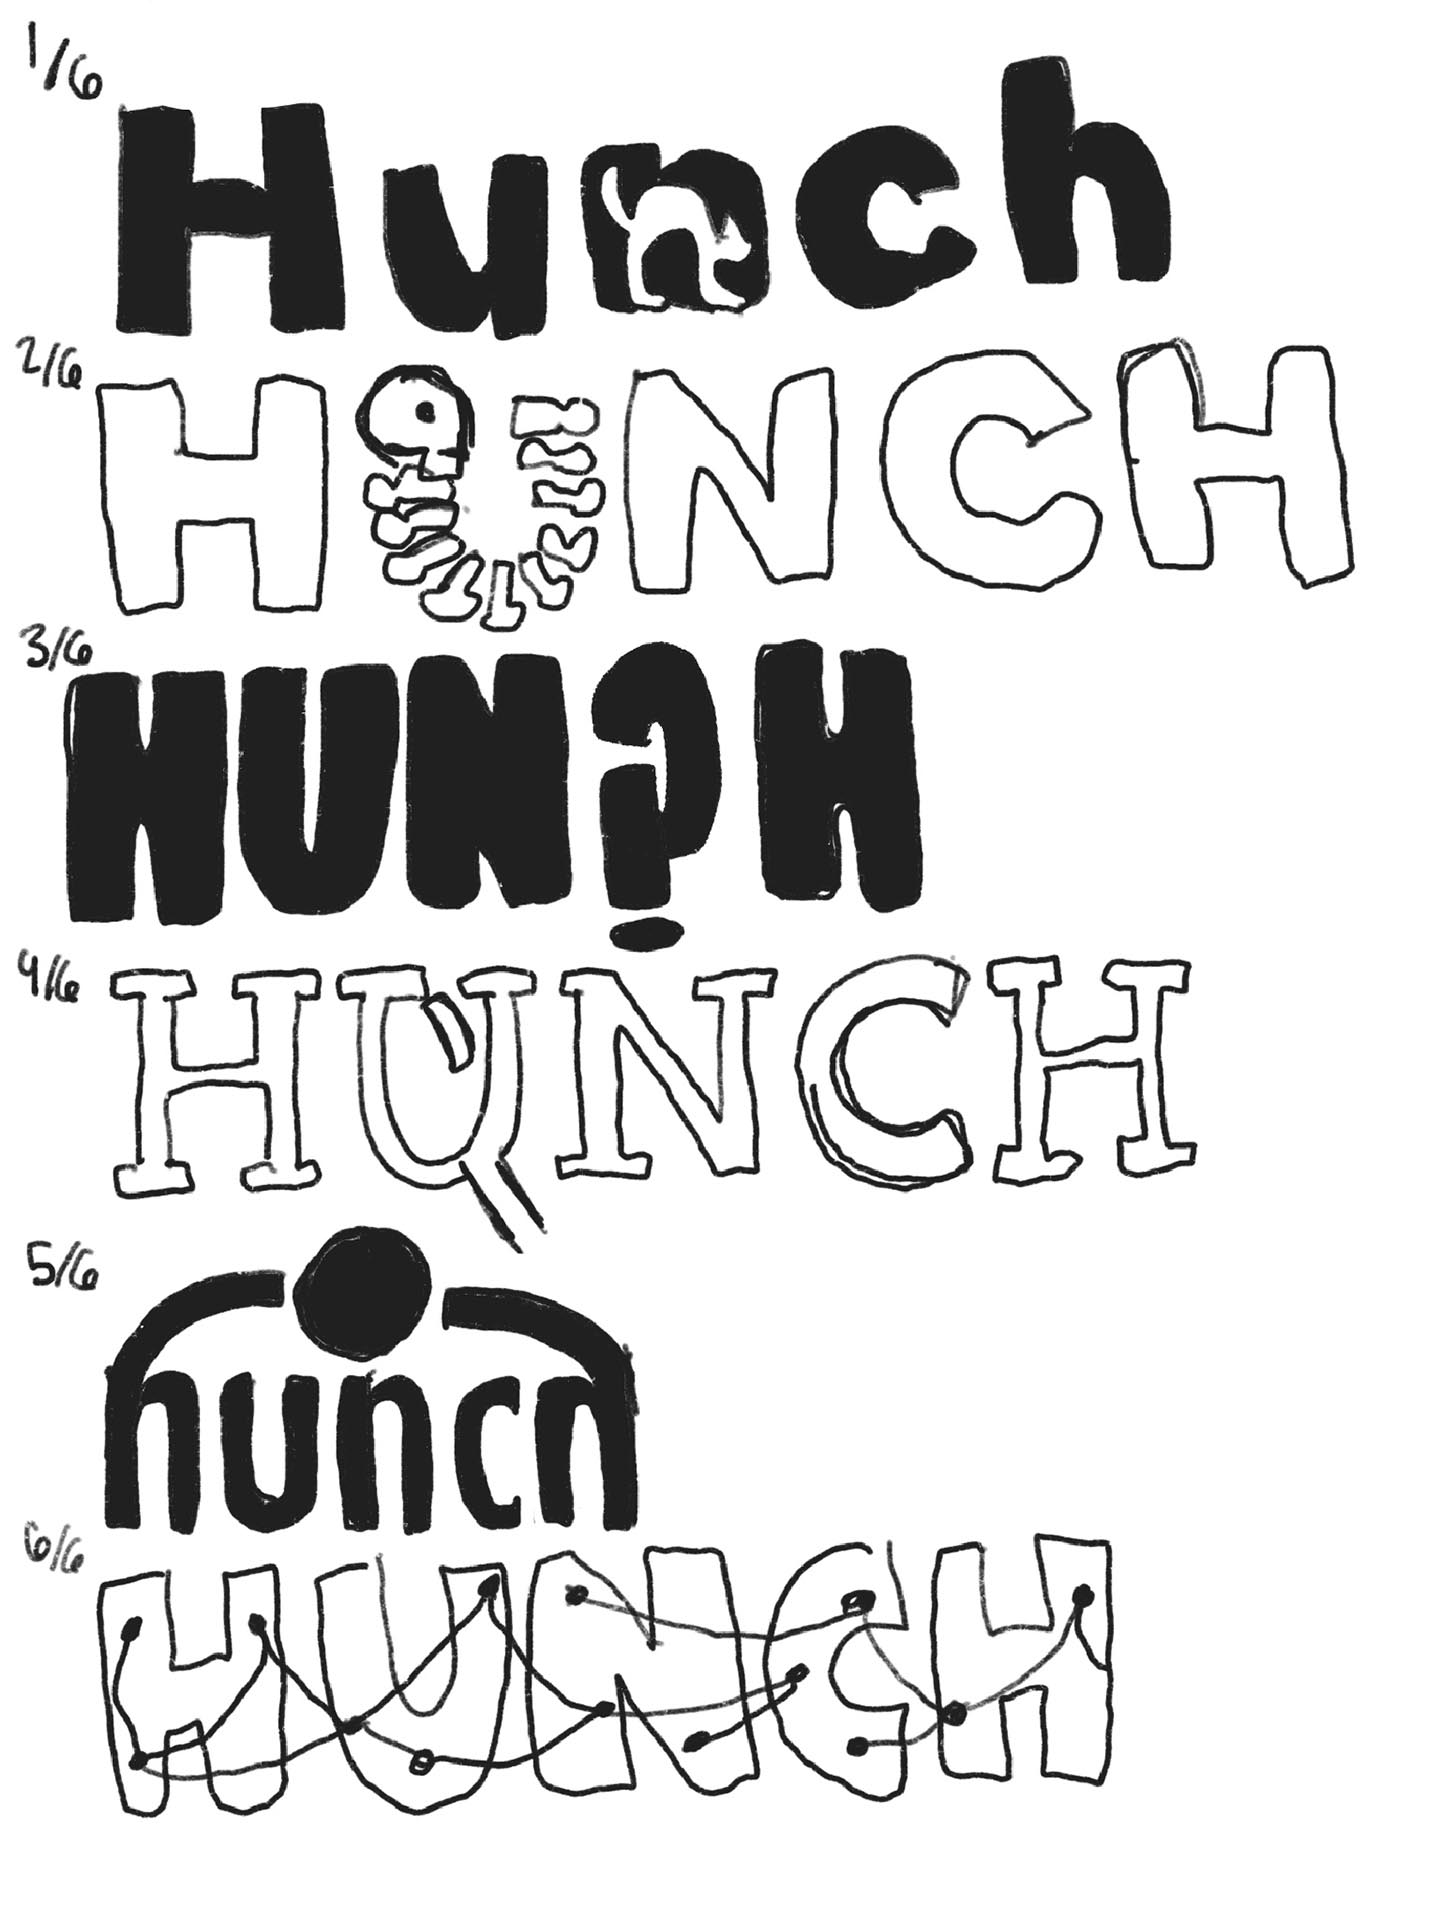 1/6
Hunch
2/6
HUNCH
3/6
HUNCH
4/6
HUNCH
5/6
hunch
6/6
HUNCH